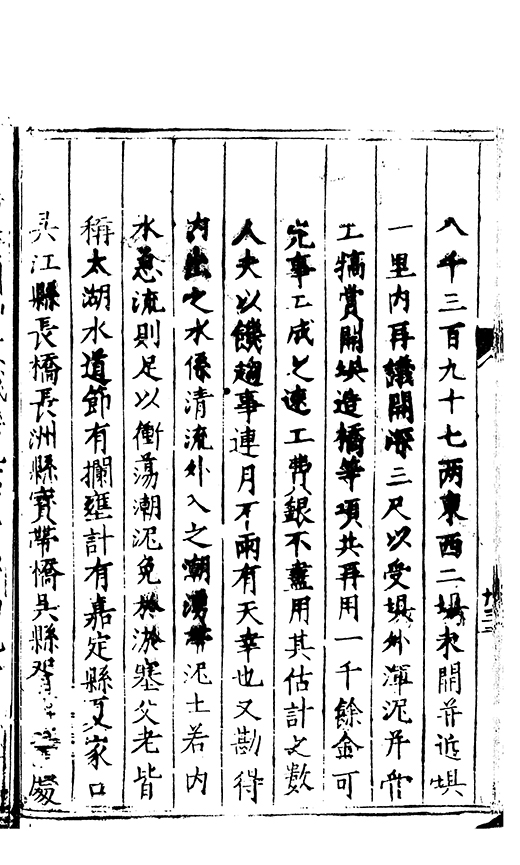 八千三百九十七两東西二壩未開并近壩
一里内再議開深三尺以受壩外渾泥并
工犒賞開壩造橋等項共再用一千餘金可
完事工成之速工費銀不盡用其估計之數
人夫以饑趨事連月不雨有天幸也又勘得
内出之水係清流外入之潮湧泥土若内
水急流則足以衝蕩潮泥免於淤塞父老皆
稱太湖水道節有攔壅計有嘉定縣夏家口
吳江縣長橋長洲縣寳帶橋吳縣處